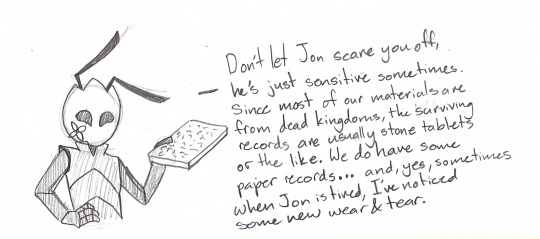 Don't let Jon scare you off,
he's just sensitive sometimes.
Since most of our materials are
from dead kingdoms, the surviving
records are usually stone tablets
or the like. We do have some
paper records... and, yes, sometimes
when Jon is tired, I've noticed
some new wear & tear.